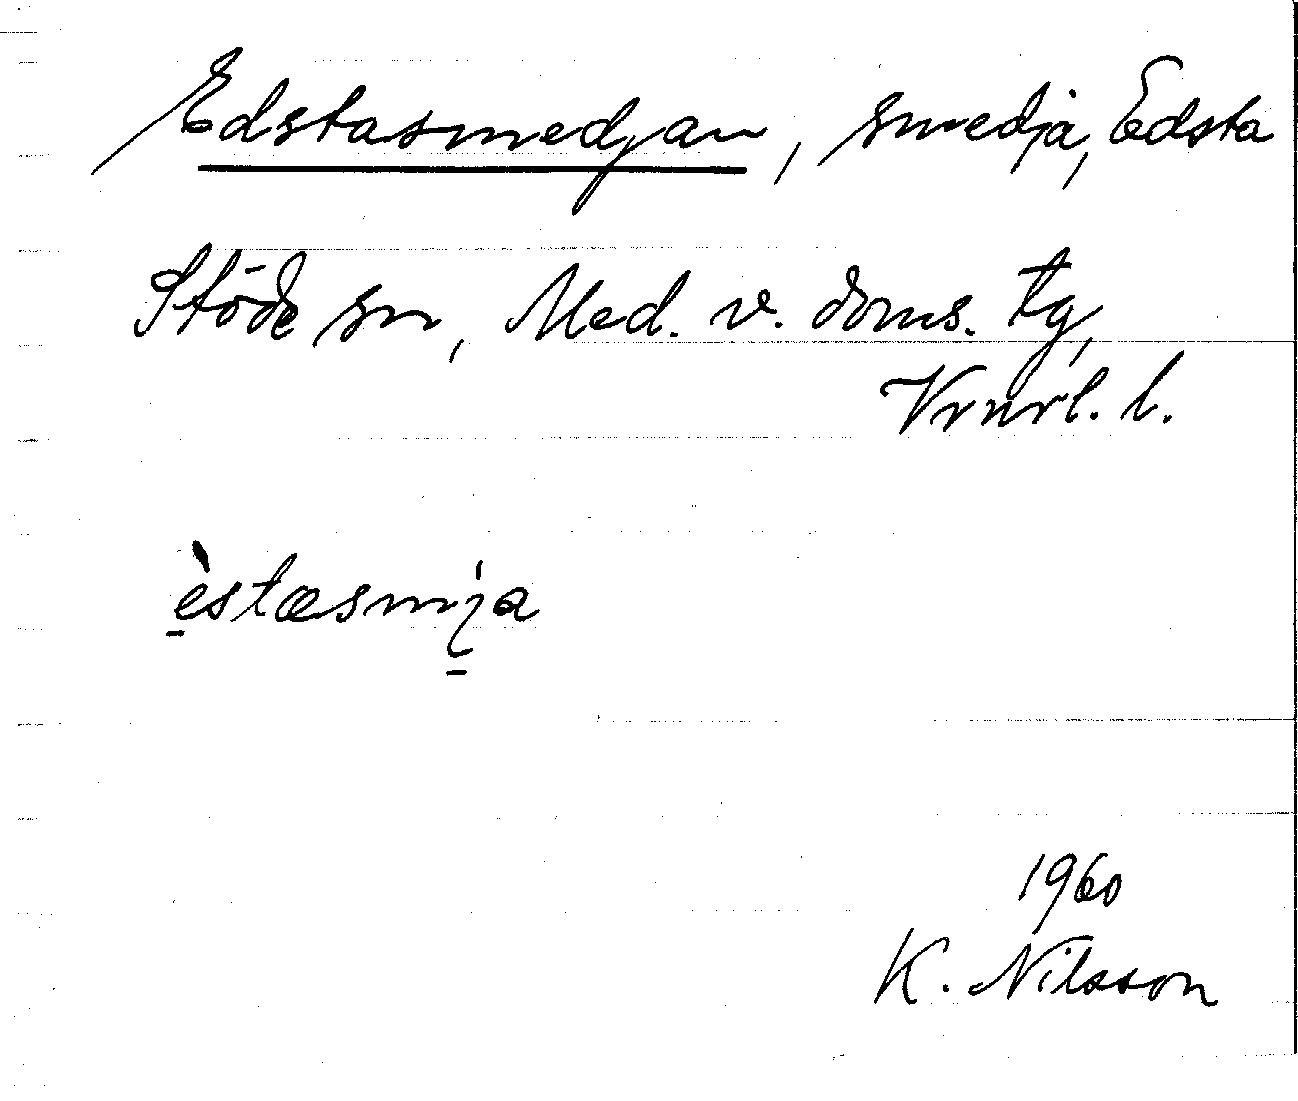 Edstasmedjan, smedja, Edsta
Stöde sn, Med. v. doms. tg,
Vrnrl. l.
èstæsmi̠ja
1960
K. Nilsson